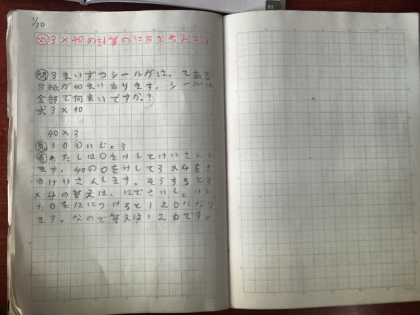 1/20
め 3×40の計算のし方を考えよう
問 3まいずつシールがは、てある
台紙が40まいあります。シールは
全部で何まいですか。?
式 3×40
40×3
見 100いじょう
自 わたしは0をけしてけいさんし
ます。40の0をけして3×4をさ
きけいさんします。そうすると3
×4の答えは、12でさいしょけし
た0を12につけると120になり
ます。なので答えは120です。